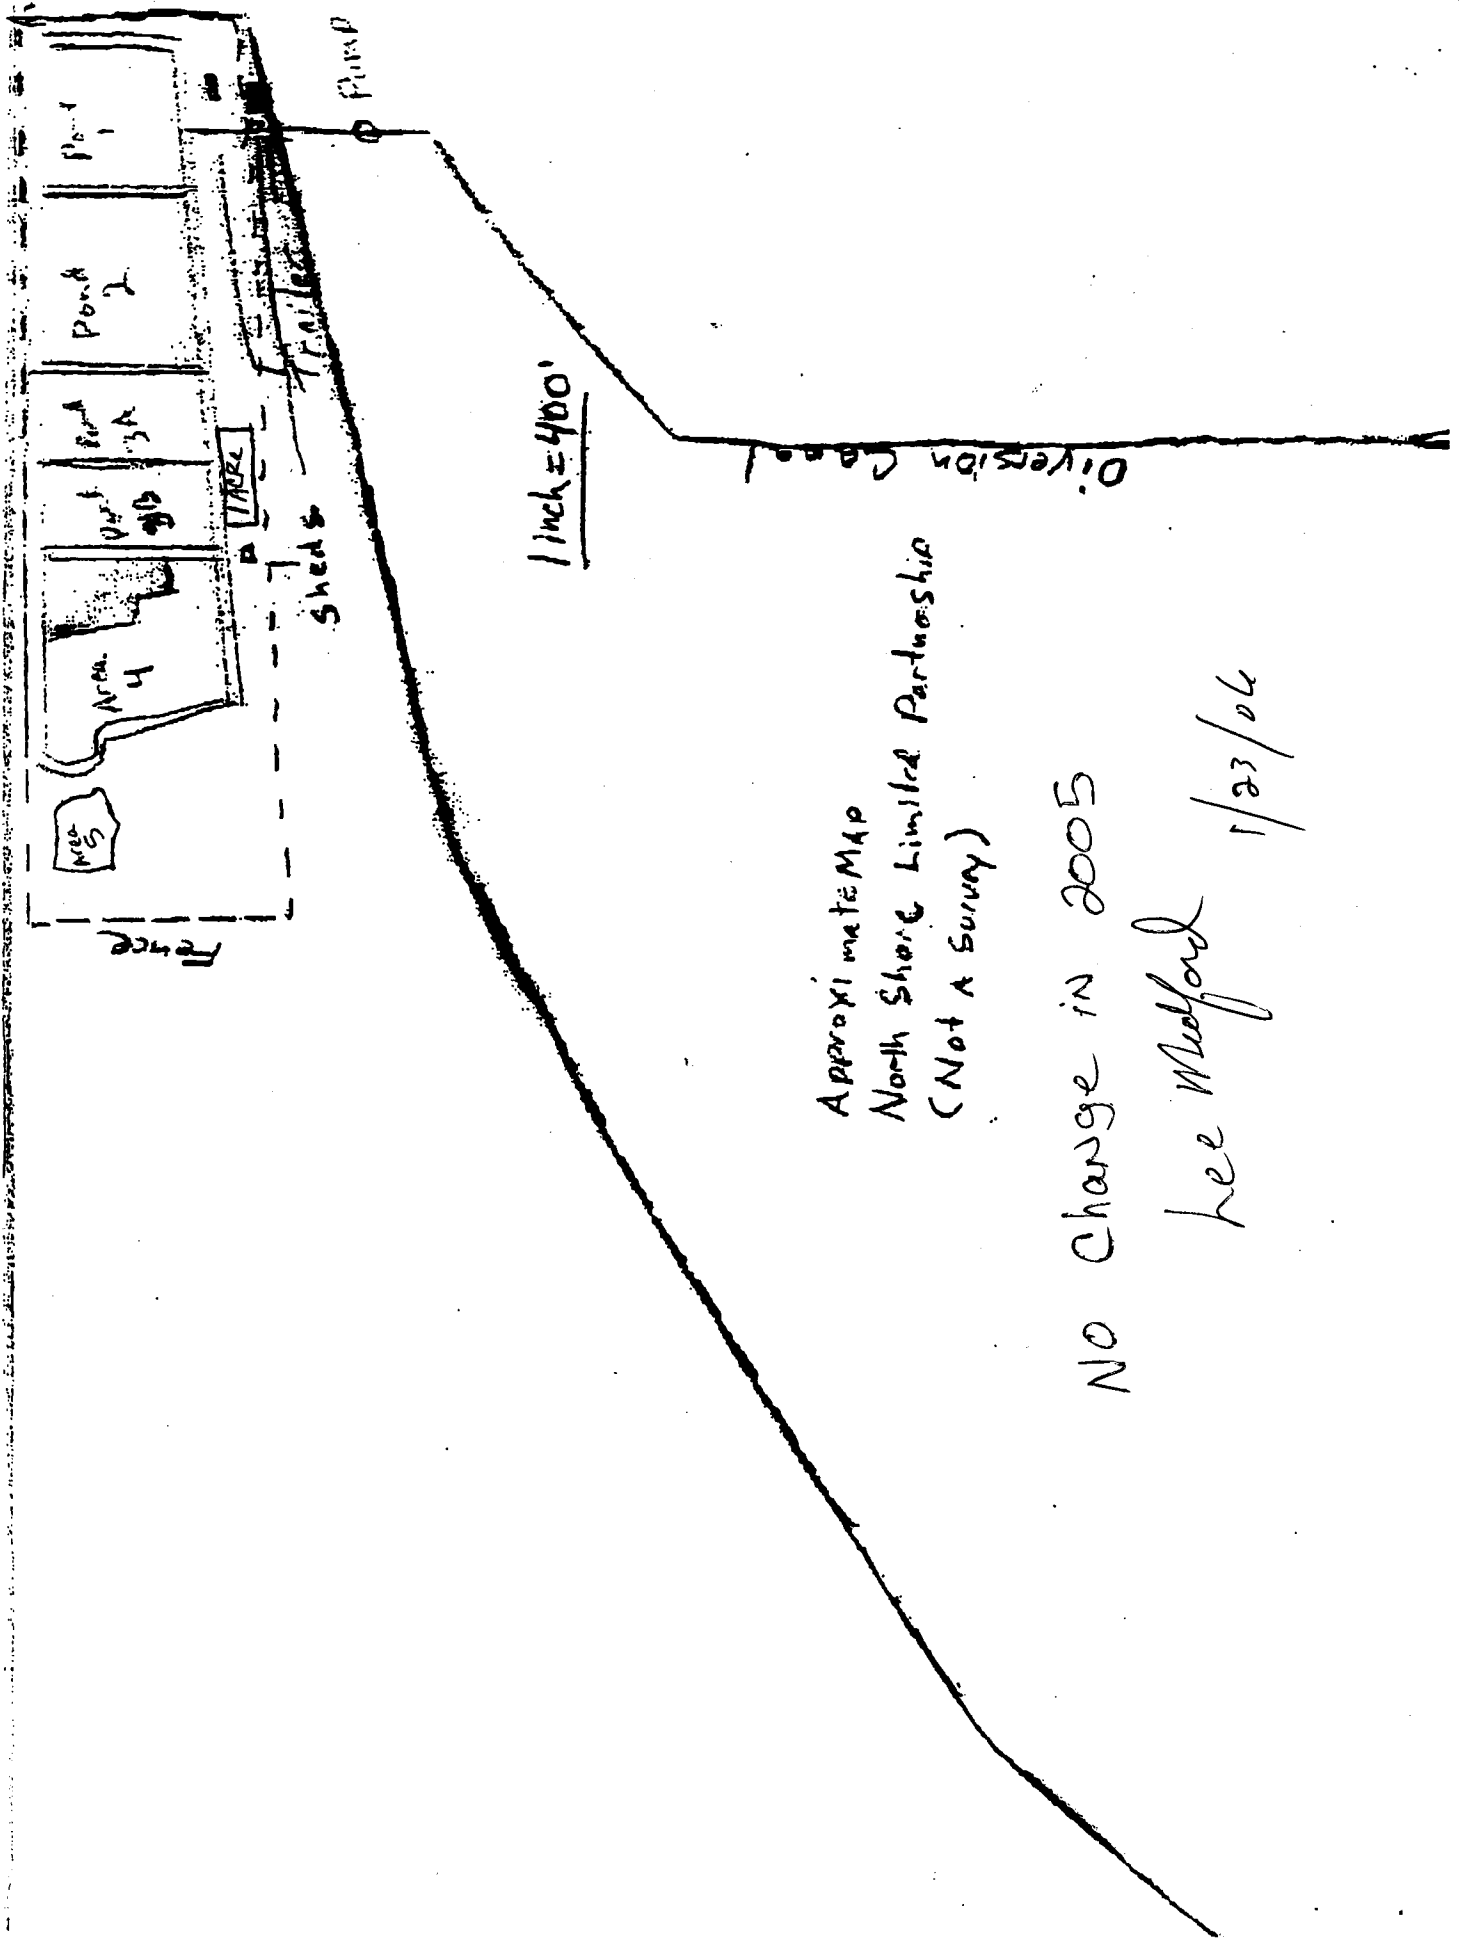 Pump
Pond
1
Pond
2
Pond
3A
Pond
1 ACRE
Area
4
Area
5
Trailer
Sheds
Fence
1 inch = 400'
Diversion Canal
Approximate MAP
North Shore Limited Partneship
(Not A Survey)
No Change in 2005
Lee Medford 1/23/06